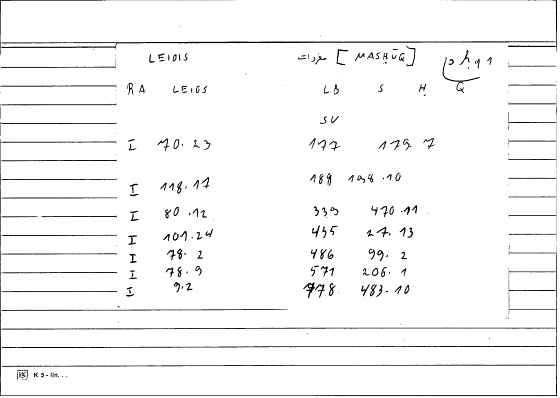 LEIOIS [MASḤŪQ]
RA LEIOS LB S Ḥ Q
SV
I 70.23 177 179.7
I 118.17 188 198.10
I 80.12 339 470.11
I 101.24 435 27.13
I 78.2 486 99.2
I 78.9 571 206.1
I 9.2 778 483.10
K 5 - lin...